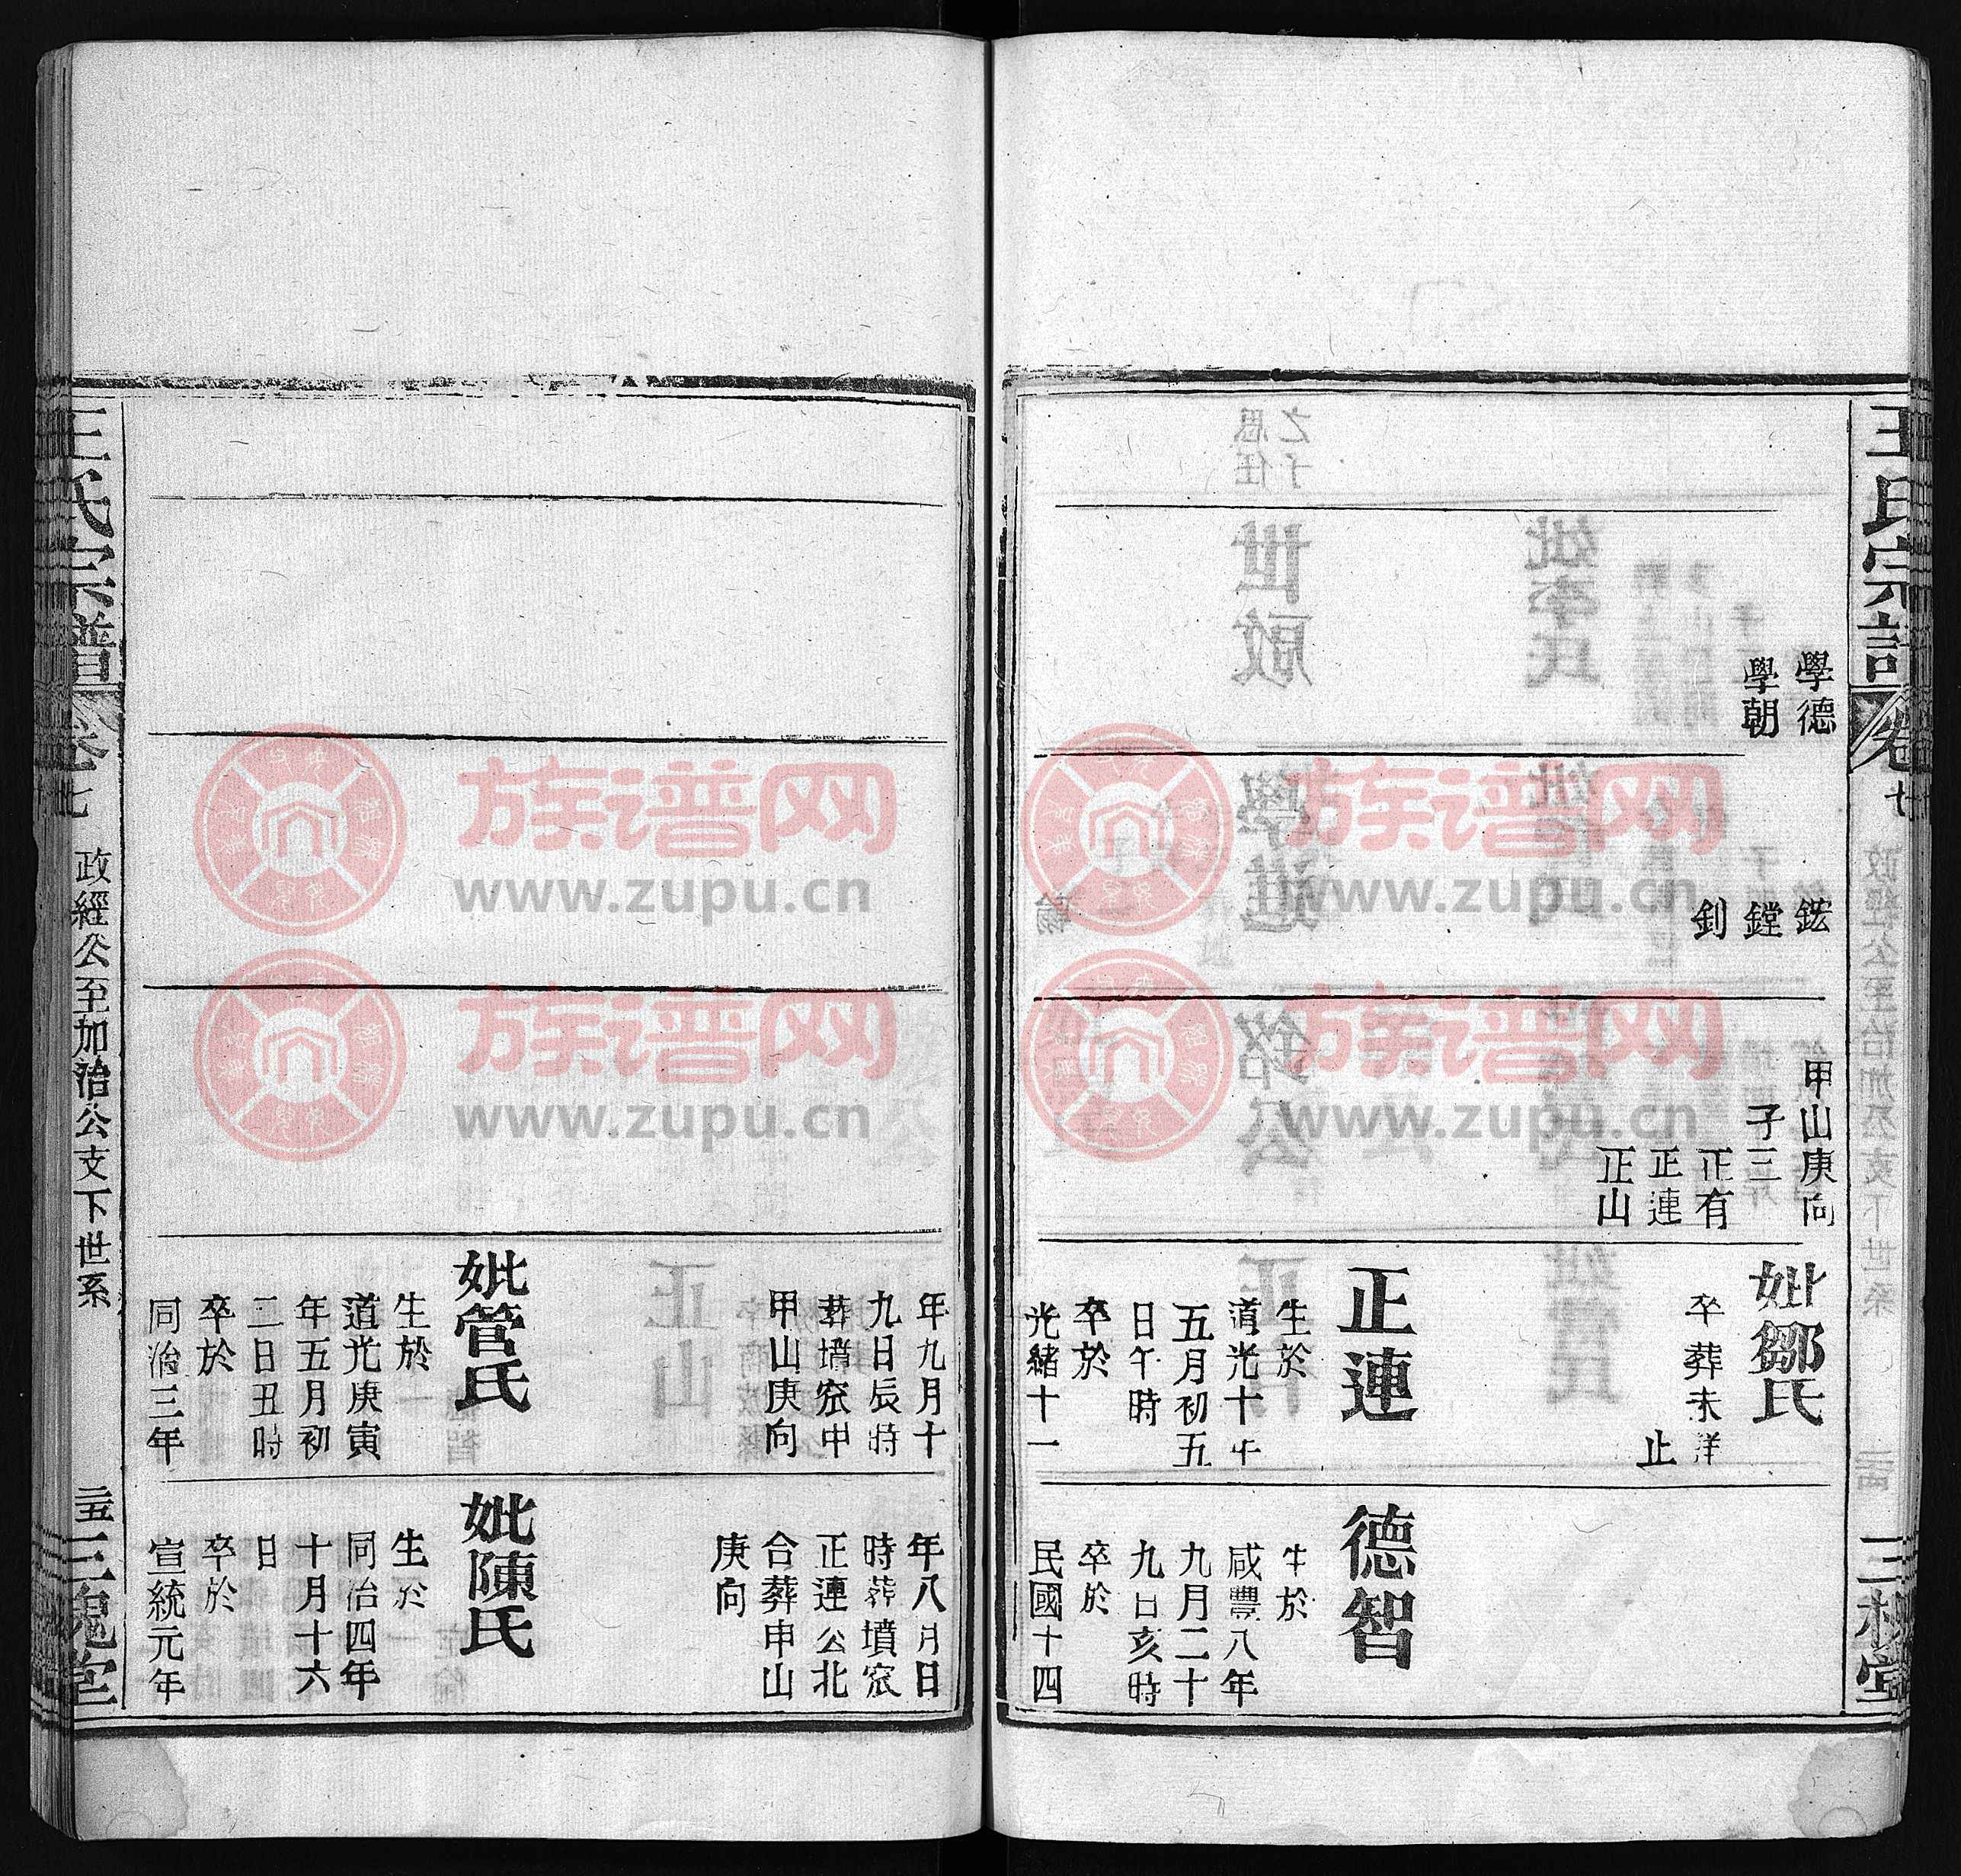 王氏宗譜
卷七
三槐堂
學德
學朝
鋐
鏜
釗
甲山庚向
子三
正有
正連
正山
妣鄒氏
卒葬未詳
止
正連
生於
道光十年
五月初五
日午時
卒於
光緒十一
年九月十
九日辰時
葬墳窊申
甲山庚向
妣管氏
生於
道光庚寅
年五月初
二日丑時
卒於
同治三年
德智
生於
咸豐八年
九月二十
九日亥時
卒於
民國十四
年八月日
時葬墳窊
正連公北
合葬申山
庚向
妣陳氏
生於
同治四年
十月十六
日
卒於
宣統元年
王氏宗譜
卷七
政經公至加治公支下世系
二五
三槐堂
族谱网
www.zupu.cn
族谱网
www.zupu.cn
族谱网
www.zupu.cn
族谱网
www.zupu.cn